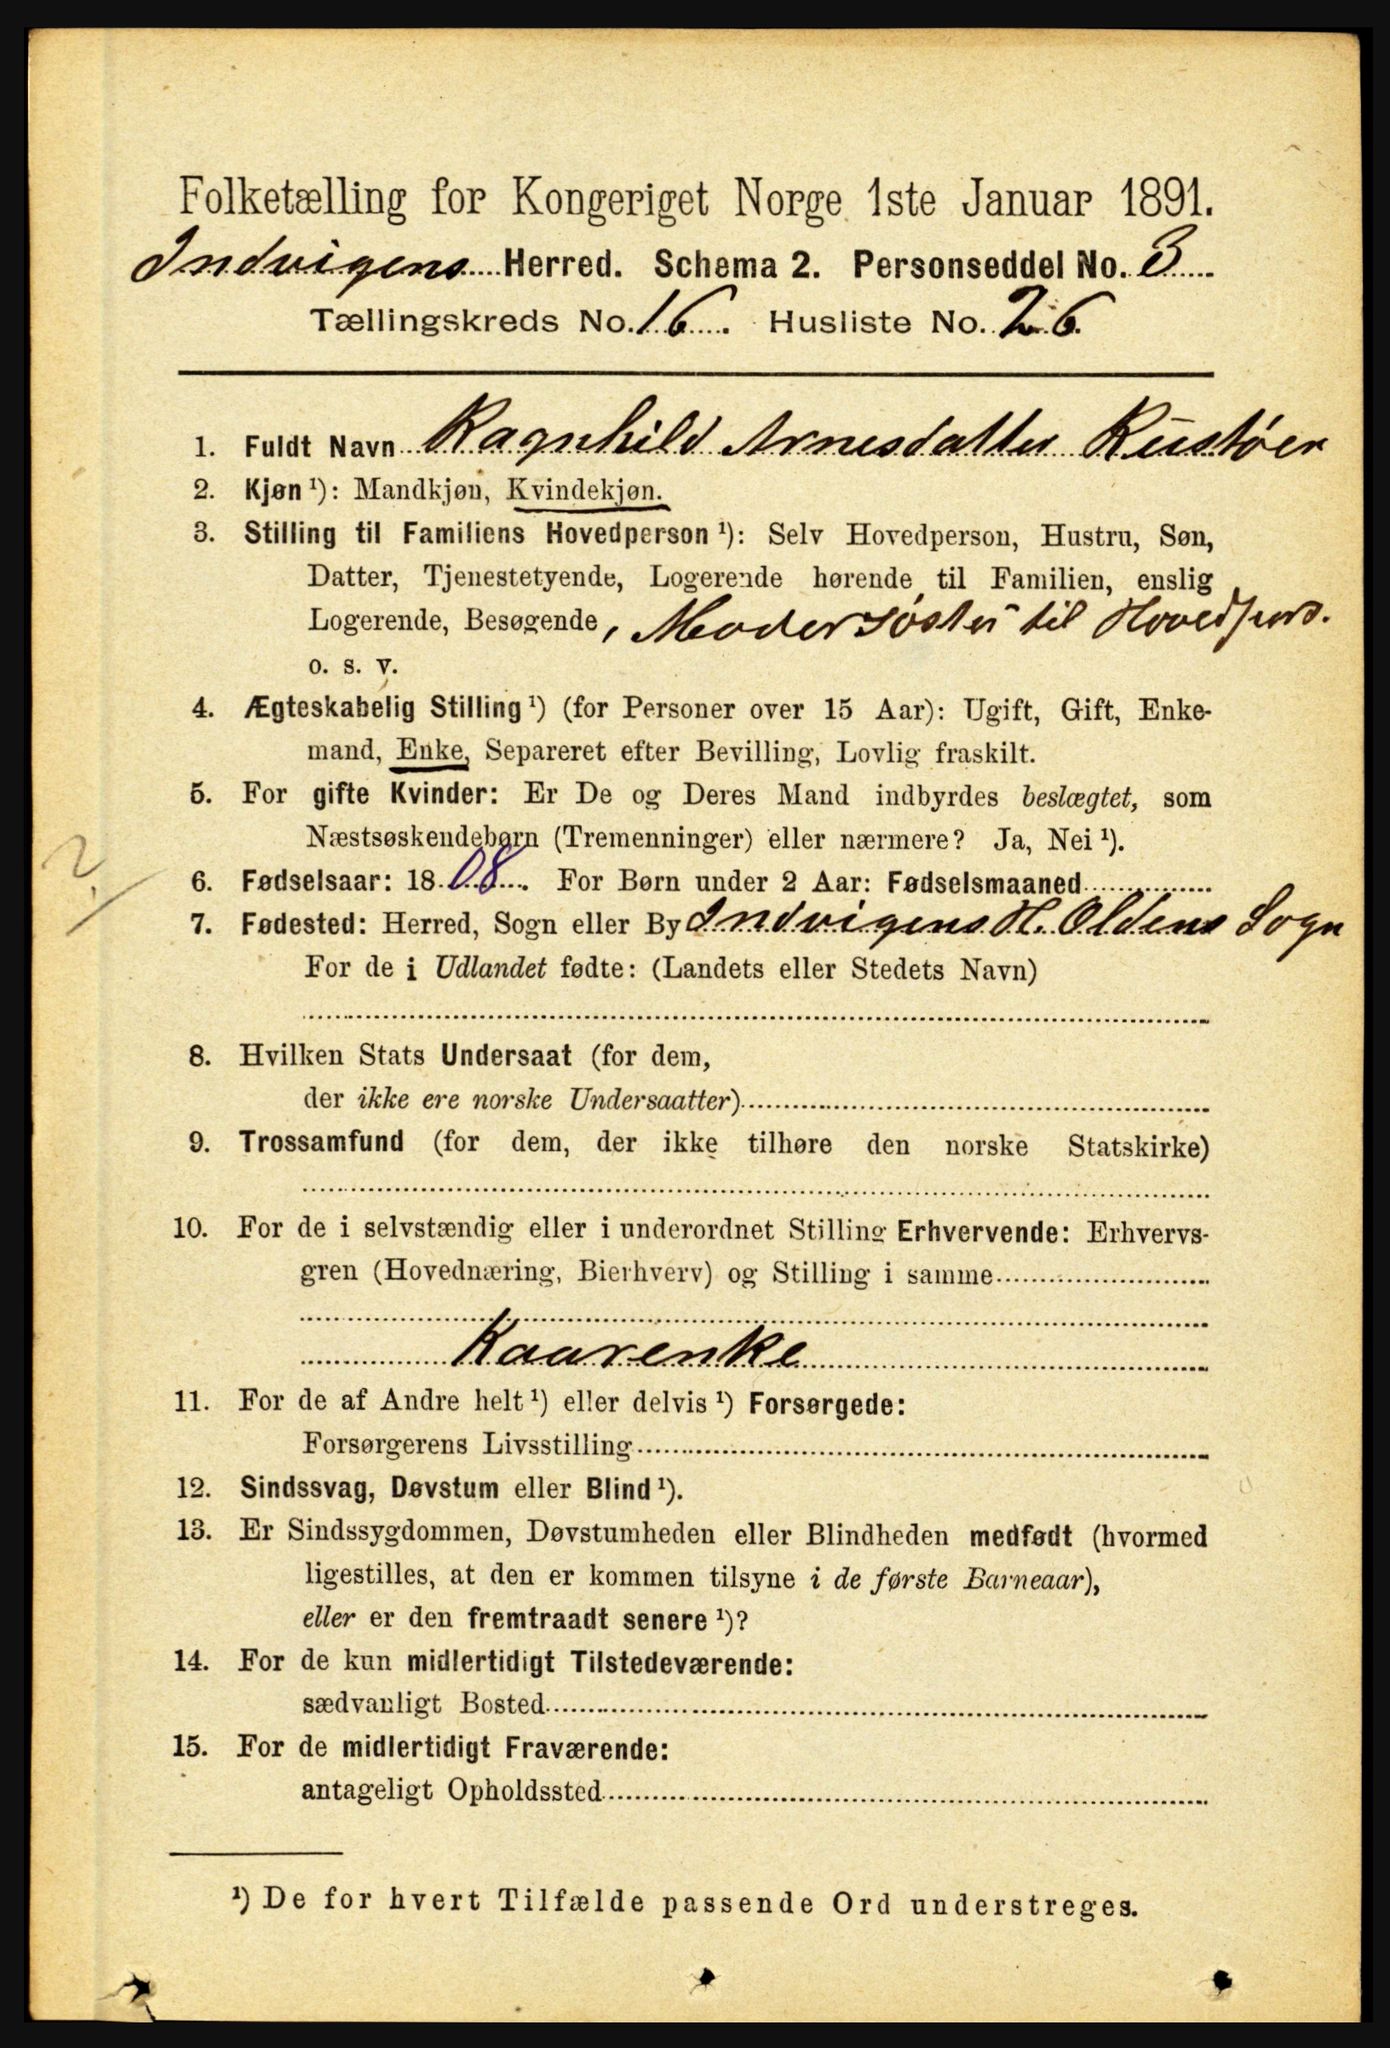 Folketælling for Kongeriget Norge 1ste Januar 1891.
Indvigens Herred. Schema 2. Personseddel No. 3
Tællingskreds No. 16. Husliste No. 26.
1. Fuldt Navn Ragnhild Arnesdatter Rustøen
2. Kjøn ¹): Mandkjøn, Kvindekjøn.
3. Stilling til Familiens Hovedperson ¹): Selv Hovedperson, Hustru, Søn,
Datter, Tjenestetyende, Logerende hørende til Familien, enslig
Logerende, Besøgende, Modersøster til Hovedpers.
o. s. v.
4. Ægteskabelig Stilling ¹) (for Personer over 15 Aar): Ugift, Gift, Enke-
mand, Enke, Separeret efter Bevilling, Lovlig fraskilt.
5. For gifte Kvinder: Er De og Deres Mand indbyrdes beslægtet, som
Næstsøskendebørn (Tremenninger) eller nærmere? Ja, Nei ¹).
6. Fødselsaar: 1808. For Børn under 2 Aar: Fødselsmaaned
7. Fødested: Herred, Sogn eller By Indvigens H. Oldens Sogn
For de i Udlandet fødte: (Landets eller Stedets Navn)
8. Hvilken Stats Undersaat (for dem,
der ikke ere norske Undersaatter)
9. Trossamfund (for dem, der ikke tilhøre den norske Statskirke)
10. For de i selvstændig eller i underordnet Stilling Erhvervende: Erhvervs-
gren (Hovednæring, Bierhverv) og Stilling i samme
Kaarenke
11. For de af Andre helt ¹) eller delvis ¹) Forsørgede:
Forsørgerens Livsstilling
12. Sindssvag, Døvstum eller Blind ¹).
13. Er Sindssygdommen, Døvstumheden eller Blindheden medfødt (hvormed
ligestilles, at den er kommen tilsyne i de første Barneaar),
eller er den fremtraadt senere ¹)?
14. For de kun midlertidigt Tilstedeværende:
sædvanligt Bosted
15. For de midlertidigt Fraværende:
antageligt Opholdssted
¹) De for hvert Tilfælde passende Ord understreges.